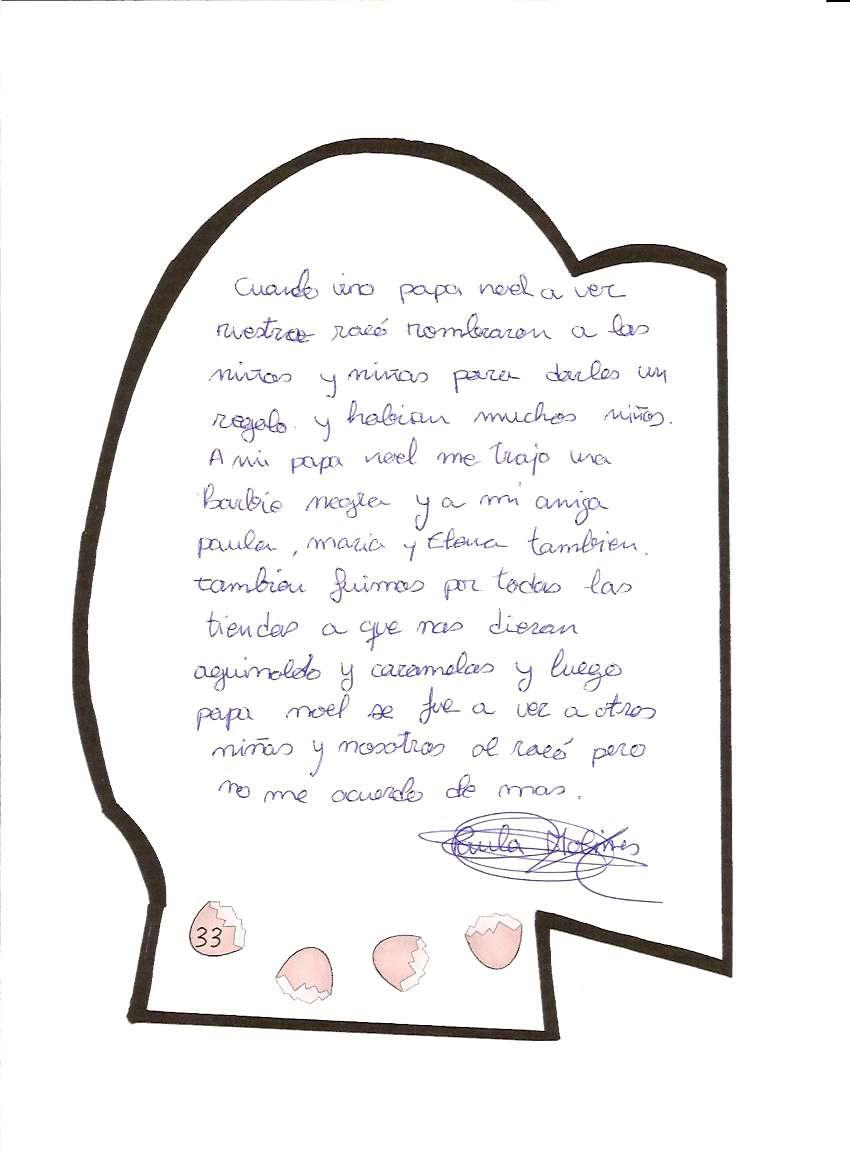 Cuando vino papa noel a ver
nuestro racó nombraron a las
niños y niñas para darles un
regalo. y habian muchos niños.
A mi papa noel me trajo una
Barbie negra y a mi amiga
paula, maria y Elena tambien.
tambien fuimos por todas las
tiendas a que nos dieran
aguinaldo y caramelos y luego
papa noel se fue a ver a otros
niños y nosotros al racó pero
no me acuerdo de mas.
Paula Molines
33